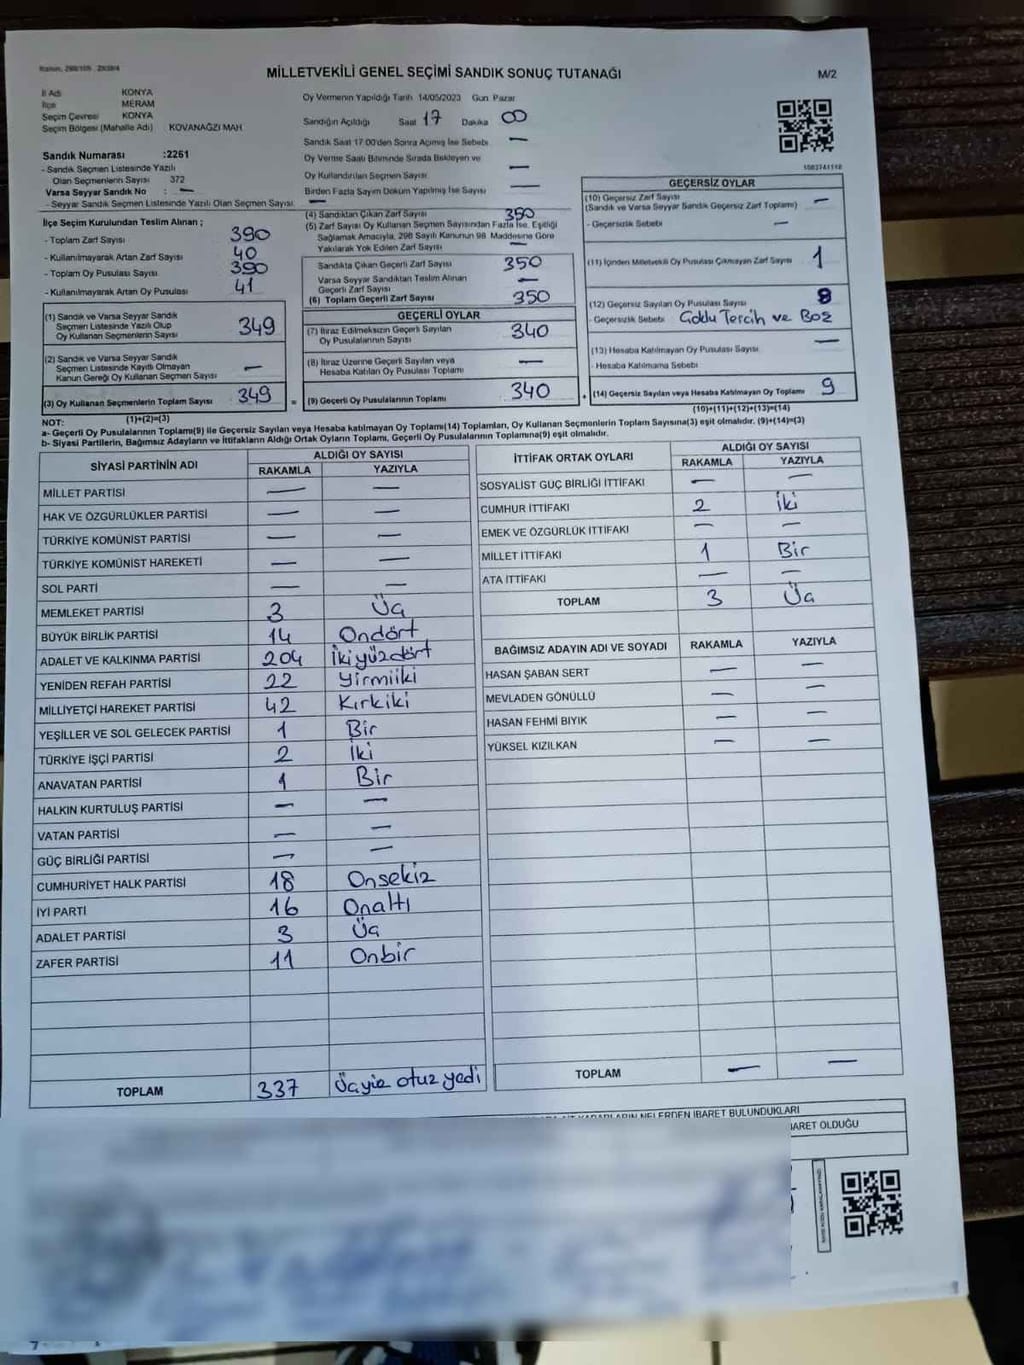 MİLLETVEKİLİ GENEL SEÇİMİ SANDIK SONUÇ TUTANAĞI
M/2
İl Adı KONYA
İlçe MERAM
Seçim Çevresi KONYA
Seçim Bölgesi (Mahalle Adı) KOVANAĞZI MAH
Sandık Numarası :2261
- Sandık Seçmen Listesinde Yazılı
Olan Seçmenlerin Sayısı 372
Varsa Seyyar Sandık No : —
- Seyyar Sandık Seçmen Listesinde Yazılı Olan Seçmen Sayısı —
Oy Vermenin Yapıldığı Tarih 14/05/2023 Gün Pazar
Sandığın Açıldığı Saat 17 Dakika 00
Sandık Saat 17.00'den Sonra Açılmış İse Sebebi —
Oy Verme Saati Bitiminde Sırada Bekleyen ve
Oy Kullandırılan Seçmen Sayısı —
Birden Fazla Sayım Döküm Yapılmış İse Sayısı —
İlçe Seçim Kurulundan Teslim Alınan ;
- Toplam Zarf Sayısı 390
- Kullanılmayarak Artan Zarf Sayısı 40
- Toplam Oy Pusulası Sayısı 390
- Kullanılmayarak Artan Oy Pusulası 41
(1) Sandık ve Varsa Seyyar Sandık
Seçmen Listesinde Yazılı Olup
Oy Kullanan Seçmenlerin Sayısı 349
(2) Sandık ve Varsa Seyyar Sandık
Seçmen Listesinde Kayıtlı Olmayan
Kanun Gereği Oy Kullanan Seçmen Sayısı —
(3) Oy Kullanan Seçmenlerin Toplam Sayısı 349
(1)+(2)=(3)
(4) Sandıktan Çıkan Zarf Sayısı 350
(5) Zarf Sayısı Oy Kullanan Seçmen Sayısından Fazla İse, Eşitliği
Sağlamak Amacıyla, 298 Sayılı Kanunun 98. Maddesine Göre
Yakılarak Yok Edilen Zarf Sayısı —
Sandıkta Çıkan Geçerli Zarf Sayısı 350
Varsa Seyyar Sandıktan Teslim Alınan
Geçerli Zarf Sayısı —
(6) Toplam Geçerli Zarf Sayısı 350
GEÇERLİ OYLAR
(7) İtiraz Edilmeksizin Geçerli Sayılan
Oy Pusulalarının Sayısı 340
(8) İtiraz Üzerine Geçerli Sayılan veya
Hesaba Katılan Oy Pusulası Toplamı —
(9) Geçerli Oy Pusulalarının Toplamı 340
1003741118
GEÇERSİZ OYLAR
(10) Geçersiz Zarf Sayısı
(Sandık ve Varsa Seyyar Sandık Geçersiz Zarf Toplamı) —
- Geçersizlik Sebebi —
(11) İçinden Milletvekili Oy Pusulası Çıkmayan Zarf Sayısı 1
(12) Geçersiz Sayılan Oy Pusulası Sayısı 8
- Geçersizlik Sebebi Çoklu Tercih ve Boş
(13) Hesaba Katılmayan Oy Pusulası Sayısı —
- Hesaba Katılmama Sebebi
(14) Geçersiz Sayılan veya Hesaba Katılmayan Oy Toplamı 9
(10)+(11)+(12)+(13)=(14)
NOT:
a- Geçerli Oy Pusulalarının Toplamı(9) ile Geçersiz Sayılan veya Hesaba katılmayan Oy Toplamı(14) Toplamları, Oy Kullanan Seçmenlerin Toplam Sayısına(3) eşit olmalıdır. (9)+(14)=(3)
b- Siyasi Partilerin, Bağımsız Adayların ve İttifakların Aldığı Ortak Oyların Toplamı, Geçerli Oy Pusulalarının Toplamına(9) eşit olmalıdır.
SİYASİ PARTİNİN ADI ALDIĞI OY SAYISI
RAKAMLA YAZIYLA
MİLLET PARTİSİ — —
HAK VE ÖZGÜRLÜKLER PARTİSİ — —
TÜRKİYE KOMÜNİST PARTİSİ — —
TÜRKİYE KOMÜNİST HAREKETİ — —
SOL PARTİ — —
MEMLEKET PARTİSİ 3 Üç
BÜYÜK BİRLİK PARTİSİ 14 Ondört
ADALET VE KALKINMA PARTİSİ 204 İkiyüzdört
YENİDEN REFAH PARTİSİ 22 Yirmiiki
MİLLİYETÇİ HAREKET PARTİSİ 42 Kırkiki
YEŞİLLER VE SOL GELECEK PARTİSİ 1 Bir
TÜRKİYE İŞÇİ PARTİSİ 2 İki
ANAVATAN PARTİSİ 1 Bir
HALKIN KURTULUŞ PARTİSİ — —
VATAN PARTİSİ — —
GÜÇ BİRLİĞİ PARTİSİ — —
CUMHURİYET HALK PARTİSİ 18 Onsekiz
İYİ PARTİ 16 Onaltı
ADALET PARTİSİ 3 Üç
ZAFER PARTİSİ 11 Onbir
TOPLAM 337 Üçyüz otuz yedi
İTTİFAK ORTAK OYLARI ALDIĞI OY SAYISI
RAKAMLA YAZIYLA
SOSYALİST GÜÇ BİRLİĞİ İTTİFAKI — —
CUMHUR İTTİFAKI 2 İki
EMEK VE ÖZGÜRLÜK İTTİFAKI — —
MİLLET İTTİFAKI 1 Bir
ATA İTTİFAKI — —
TOPLAM 3 Üç
BAĞIMSIZ ADAYIN ADI VE SOYADI RAKAMLA YAZIYLA
HASAN ŞABAN SERT — —
MEVLADEN GÖNÜLLÜ — —
HASAN FEHMİ BIYIK — —
YÜKSEL KIZILKAN — —
TOPLAM — —
KARARLARIN NELERDEN İBARET BULUNDUKLARI
İBARET OLDUĞU